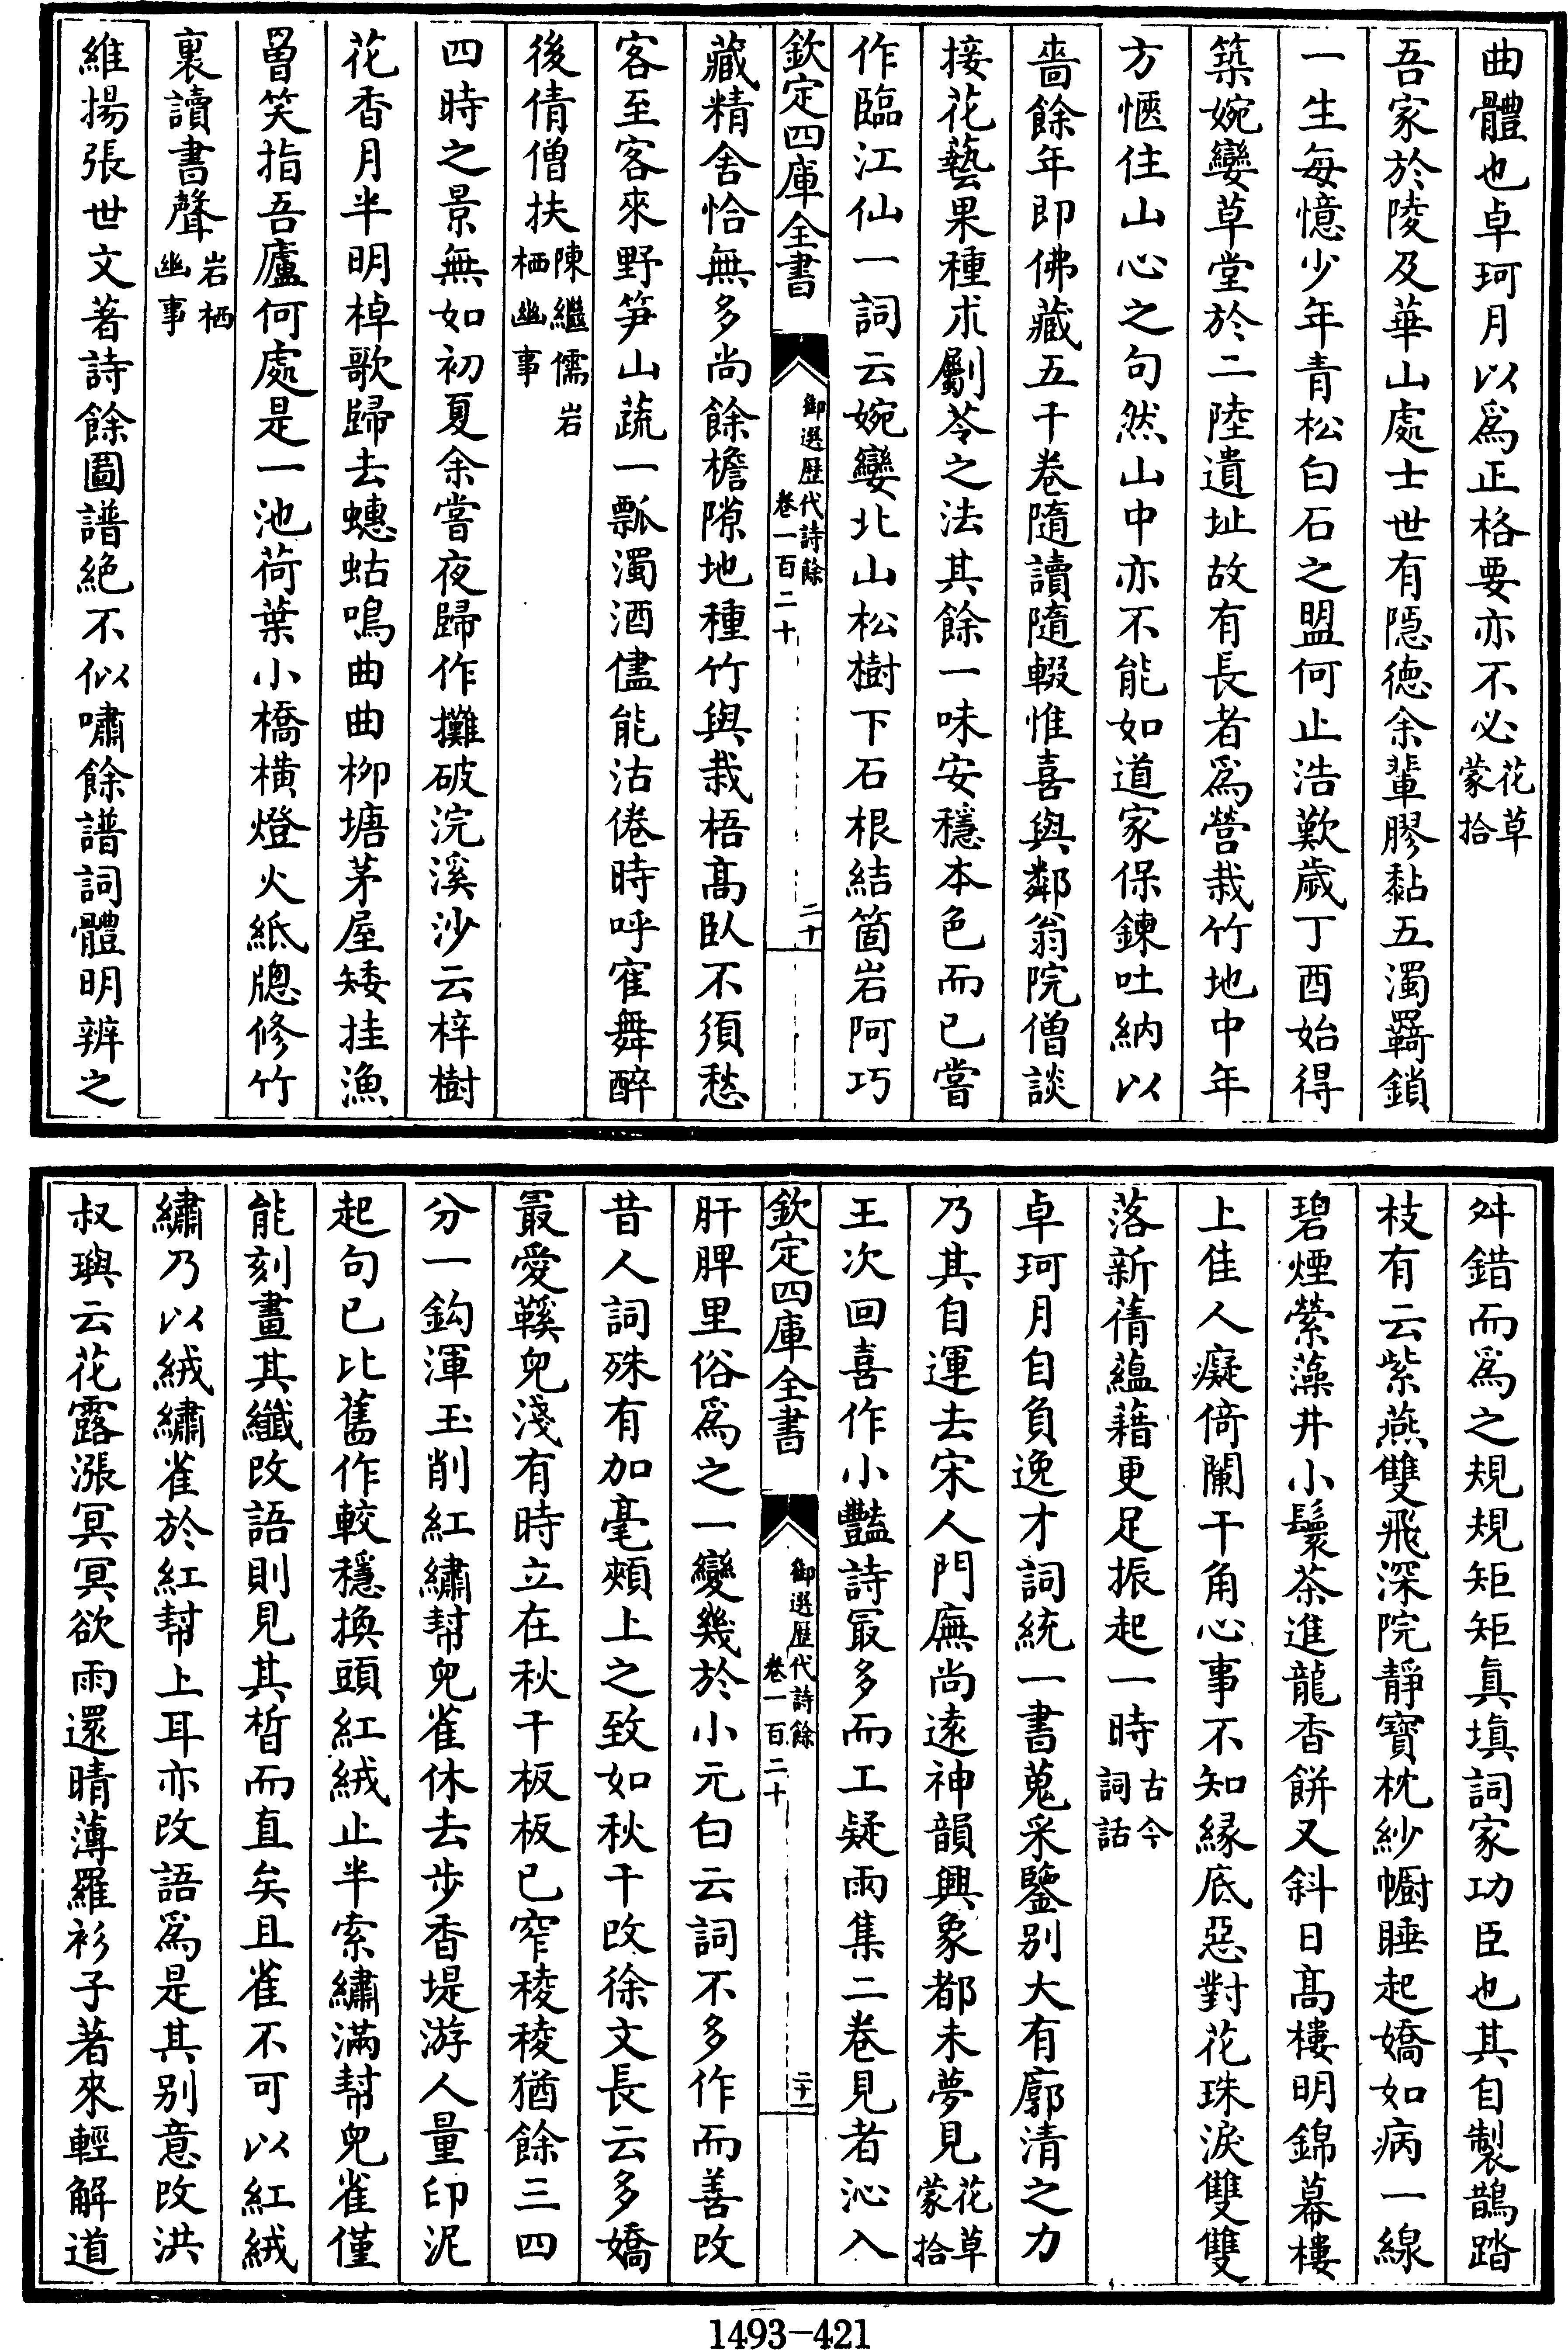 曲體也卓珂月以爲正格要亦不必花草蒙拾
吾家於陵及華山處士世有隱徳余輩膠黏五濁羇鎖
一生每憶少年青松白石之盟何止浩歎歲丁酉始得
築婉孌草堂於二陸遺址故有長者爲營栽竹地中年
方愜住山心之句然山中亦不能如道家保鍊吐納以
嗇餘年即佛藏五千卷隨讀隨輟惟喜與鄰翁院僧談
接花藝果種朮劚苓之法其餘一味安穩本色而已嘗
作臨江仙一詞云婉孌北山松樹下石根結箇岩阿巧
欽定四庫全書
御選歴代詩餘
卷一百二十
二十
藏精舍恰無多尚餘檐隙地種竹與栽梧髙臥不須愁
客至客來野笋山蔬一瓢濁酒儘能沽倦時呼寉舞醉
後倩僧扶陳繼儒岩栖幽事
四時之景無如初夏余嘗夜歸作攤破浣溪沙云梓樹
花香月半明棹歌歸去蟪蛄鳴曲曲栁塘茅屋矮挂漁
罾笑指吾廬何處是一池荷葉小橋橫燈火紙牕修竹
裏讀書聲岩栖幽事
維揚張世文著詩餘圖譜絶不似嘯餘譜詞體明辨之
舛錯而爲之規規矩矩眞填詞家功臣也其自製鵲踏
枝有云紫燕雙飛深院靜寶枕紗幮睡起嬌如病一線
碧煙縈藻井小鬟茶進龍香餅又斜日髙樓明錦幕樓
上佳人癡倚闌干角心事不知緣底惡對花珠淚雙雙
落新蒨蘊藉更足振起一時古今詞話
卓珂月自負逸才詞統一書蒐采鑒别大有廓清之力
乃其自運去宋人門廡尚遠神韻興象都未夢見花草蒙拾
王次回喜作小豔詩冣多而工疑雨集二卷見者沁入
欽定四庫全書
御選歴代詩餘
卷一百二十
二十一
肝脾里俗爲之一變幾於小元白云詞不多作而善改
昔人詞殊有加毫頰上之致如秋千改徐文長云多嬌
最愛鞵兒淺有時立在秋千板板已窄稜稜猶餘三四
分一鈎渾玉削紅繡幇兒雀休去步香堤游人量印泥
起句已比舊作較穩換頭紅絨止半索繡滿幇兒雀僅
能刻畫其纖改語則見其晳而直矣且雀不可以紅絨
繡乃以絨繡雀於紅幇上耳亦改語爲是其别意改洪
叔璵云花露漲冥冥欲雨還晴薄羅衫子著來輕解道
1493-421